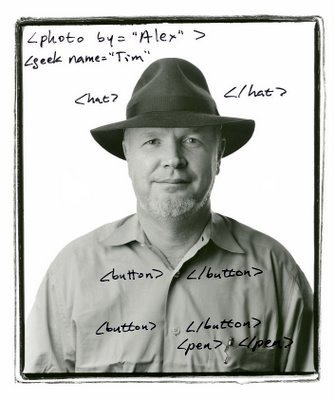 <photo by="Alex" >
<geek name="Tim"
<hat> </hat>
<button> </button>
<button> </button>
<pen> </pen>